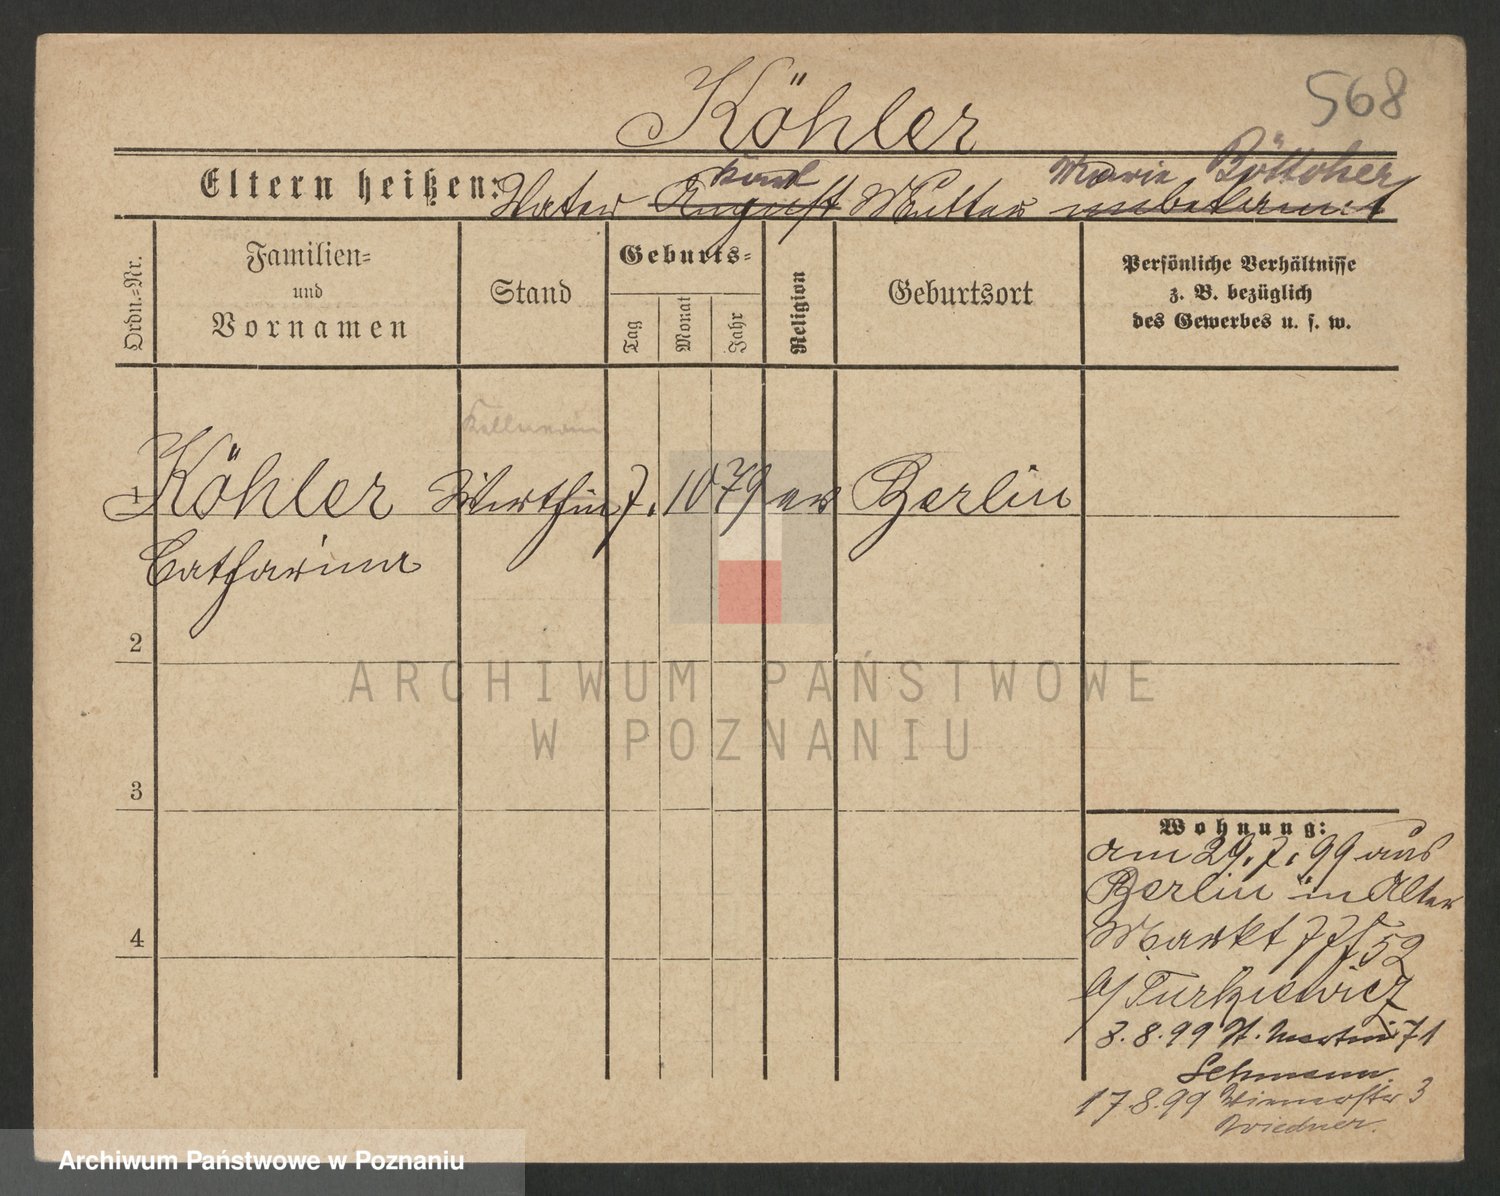 568
Köhler
Karl Marie Böttcher
Eltern heißen: Vater August Mutter unbekannt
Ordn.-Nr.
Familien-
und
Vornamen
Stand
Geburts-
Tag
Monat
Jahr
Religion
Geburtsort
Persönliche Verhältnisse
z. B. bezüglich
des Gewerbes u. s. w.
Kellnerin
1 Köhler Wirthin 7. 10 79 ev Berlin
Catharina
2
3
4
Wohnung:
am 29. 7. 99 aus
Berlin in Alter
Markt 52
b/ Turkiewicz
3. 8. 99 St. Martin 71
Lehmann
17.8.99 3
Wiedner.
ARCHIWUM PAŃSTWOWE
W POZNANIU
Archiwum Państwowe w Poznaniu